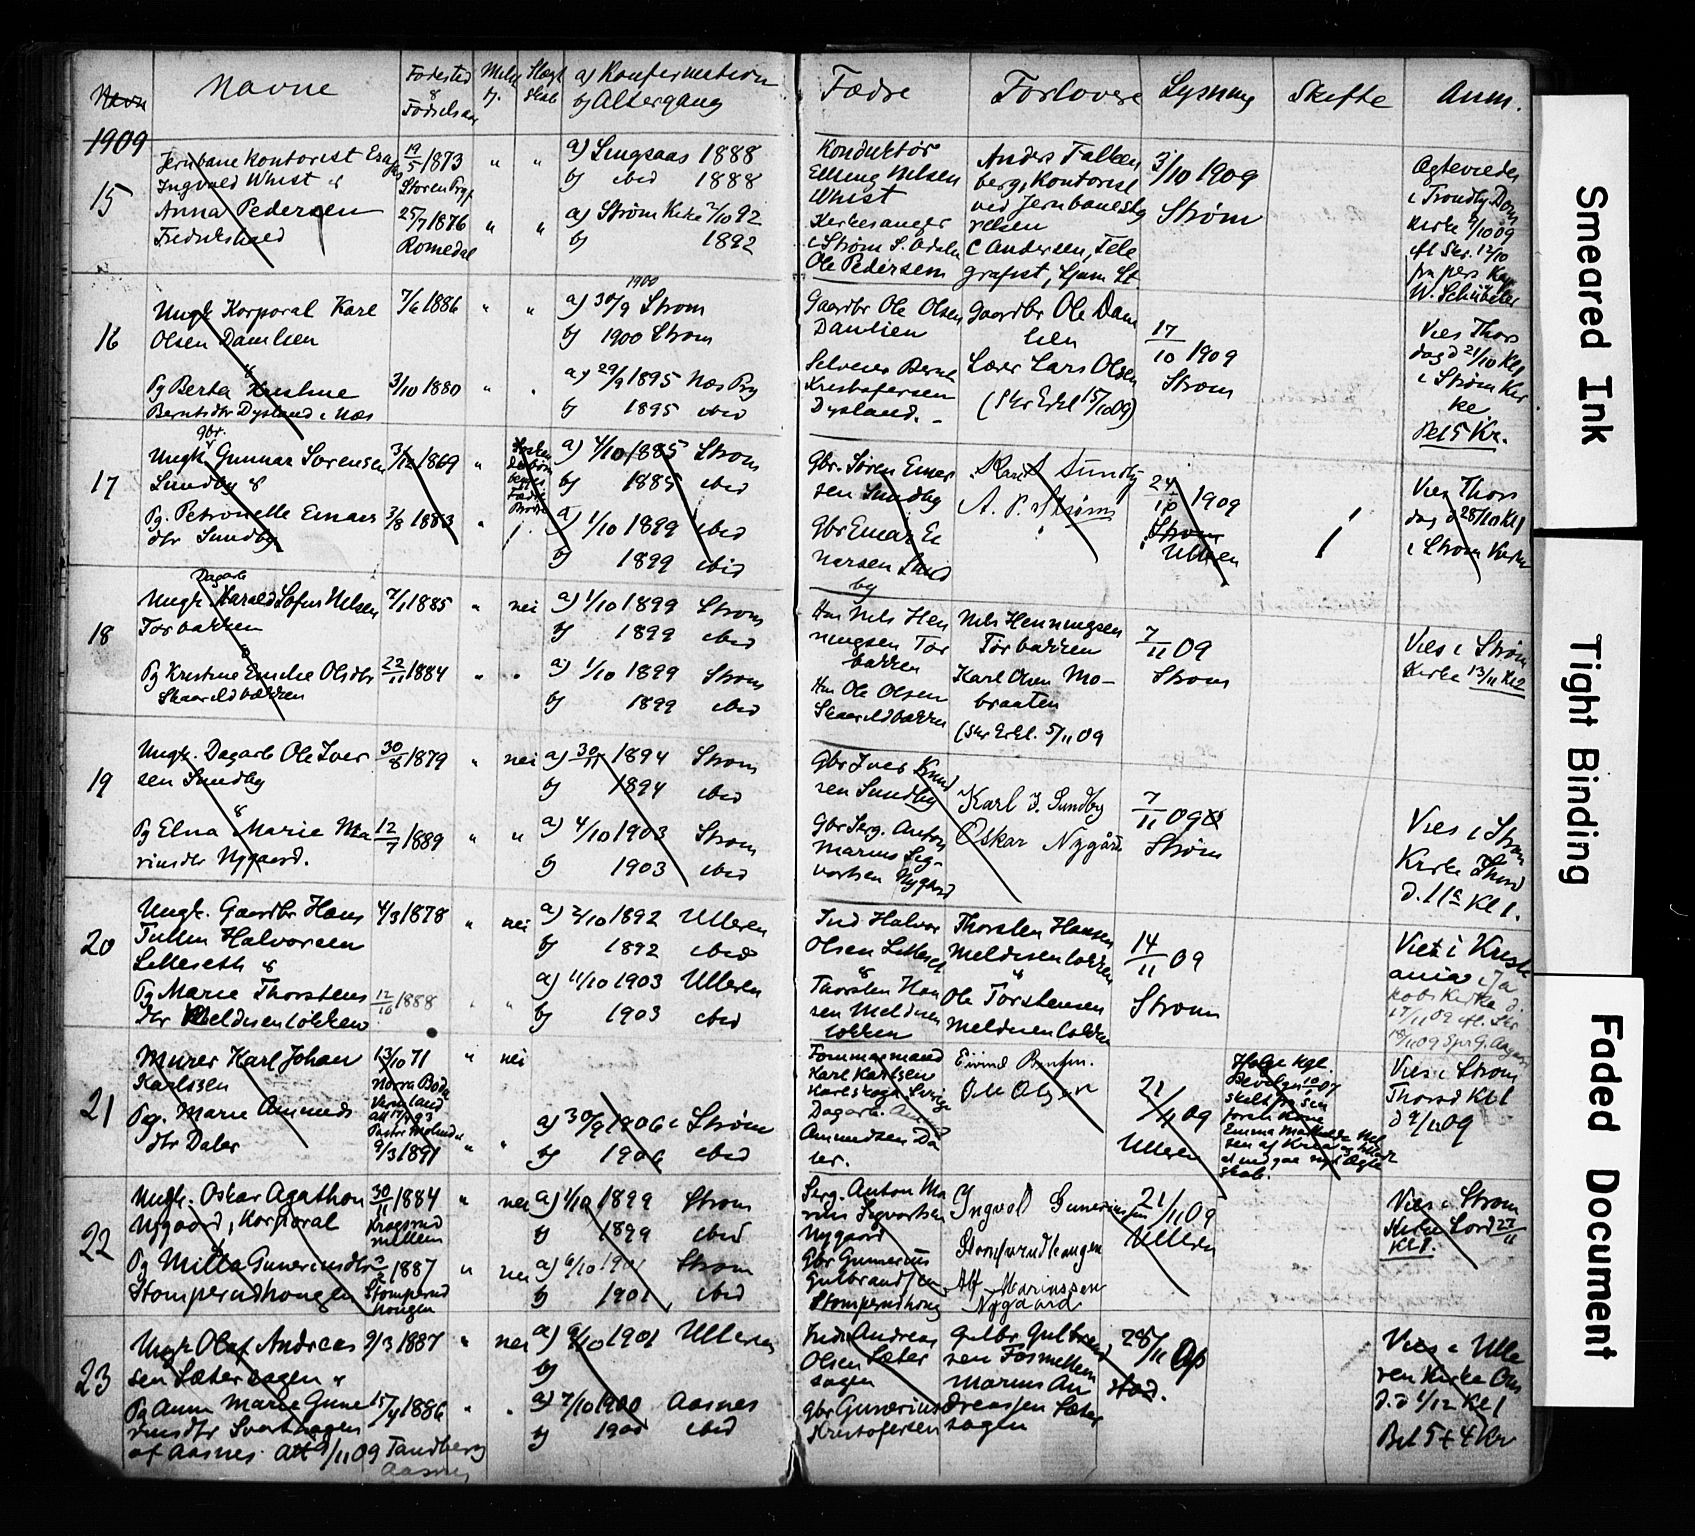 Navne
Fødested
&
Fødselsaar
a) Konfirmation
b) Altergang
Fædre
Forlovere
Lysning
Skifte
Anm.
1909
15
Jernbane Kontorist
Ingvald Whist &
Anna Pedersen
Fredrikshald
19/5 1873
Støren Prgj
25/7 1876
Romedal
a) Singsaas 1888
b) ibid 1888
a) Strøm Kirke 2/10 92
b) 1892
Konduktør
Elling Nilsen
Whist
Kirkesanger
i Strøm S. Odalen
Ole Pedersen
Anders Falken
berg, Kontorist
ved Jernbanesty
relsen
C Andersen, Tele
grafist, Ljan St.
3/10 1909
Strøm
Ægtevieder
i Trondhj Dom
Kirke 9/10 09
fl Skr. 12/10
fra pers. Kap
W. Schübeler
16
Ungk Korporal Karl
Olsen Damlien
&
Pg Berta Kristine
Berntsdtr Dysland i Næs
7/6 1886
3/10 1880
1900
a) 30/9 Strøm
b) 1900 Strøm
a) 29/9 1895 Næs Prg
b) 1895 ibid
Gaardbr Ole Olsen
Damlien
Selveier Bernt
Kristofersen
Dysland.
Gaardbr Ole Dam
lien
Lærer Lars Olsen
(Skr Erkl 15/10 09)
17/10 1909
Strøm
Vies Thors
dag d 21/10 Kl 1
i Strøm Kir
ke.
Bet 5 Kr.
17
gbr.
Ungk Gunnar Sørensen
Sundby &
Pg. Petronelle Einars
dtr Sundby
3/12 1869
3/8 1883
a) 4/10 1885 Strøm
b) 1885 ibid
a) 1/10 1899 ibid
b) 1899 ibid
Gbr. Søren Einar
sen Sundby
Gbr Einar Ei
narsen Sund
by
Knut Sundby
A. P. Strøm
24/10 1909
Strøm
Ullern
Vies Thors
dag d 28/10 Kl 1
i Strøm Kirke
18
Dagarb
Ungk. Harald Sofus Nilsen
Torbakken
&
Pg Kristine Emilie Olsdtr
Skaarildbakken
7/11 1885
22/11 1884
nei
a) 1/10 1899 Strøm
b) 1899 ibid
a) 1/10 1899 Strøm
b) 1899 ibid
Hm Nils Hen
ningsen Tor
bakken
Hm Ole Olsen
Skaarildbakken
Nils Henningsen
Torbakken
Karl Olsen Mo-
braaten
(Skr Erkl. 5/11 09
7/11 09
Strøm
Vies i Strøm
Kirke 13/11 Kl 2
19
Ungk. Dagarb Ole Iver
sen Sundby
&
Pg Elna Marie Ma
rinsdtr Nygaard.
30/8 1879
12/7 1889
nei
a) 30/11 1894 Strøm
b) 1894 ibid
a) 4/10 1903 Strøm
b) 1903 ibid
Gbr Iver Knud
sen Sundby
Gbr Serg. Anton
Marius Sig-
vartsen Nygaard
Karl J. Sundby
Oskar Nygård
7/11 09
Strøm
Vies i Strøm
Kirke Thorsd
d. 11 Kl 1.
20
Ungk. Gaardbr Hans
Tullin Halvorsen
Lilleseth &
Pg Marie Thorstens
dtr Meldisenløkken
4/3 1878
12/10 1888
nei
a) 2/10 1892 Ullern
b) 1892 ibid
a) 11/10 1903 Ullern
b) 1903 ibid
Ind Halvor
Olsen Lilleset
&
Thorsten Han
sen Meldisen
løkken
Thorsten Hansen
Meldisenløkken
Ole Torstensen
Meldisenløkken
14/11 09
Strøm
Viet i Kristi
ania i Ja
kobs Kirke d.
17/11 09 fl. Skr
21
Murer Karl Johan
Karlsen
Pg. Marie Amunds
dtr Daler
13/10 71
Norra Boda
Vermland
9/3 1891
nei
a) 30/9 1906 i Strøm
b) 1906 ibid
Tømmermand
Karl Karlsen
Karlskoga Sverige
Dagarb.
Amundsen Da
ler.
Ole Olsen
21/11 09
Ullern
Ifølge Kgl.
Bevilgn 10/07
skilt fra sin
første Kone
Vies i Strøm
Thorsd Kl 1
22
Ungk. Oskar Agathon
Nygaard, Korporal
Pg Milla Gunerinsdtr
Stomperudhougen
30/11 1884
1887
Stomperud
hougen
nei
nei
a) 1/10 1899 Strøm
b) 1899 ibid
a) 6/10 1901 Strøm
b) 1901 ibid
Serg. Anton Ma
rius Sigvartsen
Nygaard
Gbr Gunerius
Gulbrandsen
Stomperudhoug
Ingvol Guneriussen
Stomperudhaugen
Alf Marinssen
Nygaard
21/11 09
Ullern
Vies i Strøm
Kirke Lord 27/11
Kl 1.
23
Ungk Olaf Andreas
sen Sætersagen &
Pg Anna Marie Gune
riusdtr Svarthagen
af Aasnes. Att 9/11 09 Tandberg
Aasnes
9/3 1887
15/4 1886
nei
a) 6/10 1901 Ullern
b)
a) 7/10 1900 Aasnes
b) 1900 ibid
Ind. Andreas
Olsen Sæter
sagen
Gbr Gunerius
Kristofersen
Gulbr Gulbrand
sen Fosmellem
Marius An
dreassen Sæter
sagen
28/11 09
Vies i Ulle
ren Kirke Ons
d. d 1/12 Kl 1
Bet 5 + 4 Kr
Smeared Ink
Tight Binding
Faded Document